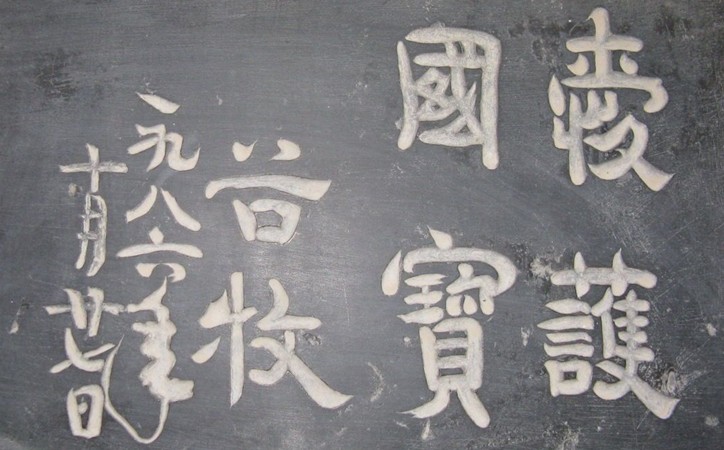 愛護
國寶
谷牧
一九八六年
十月廿七日